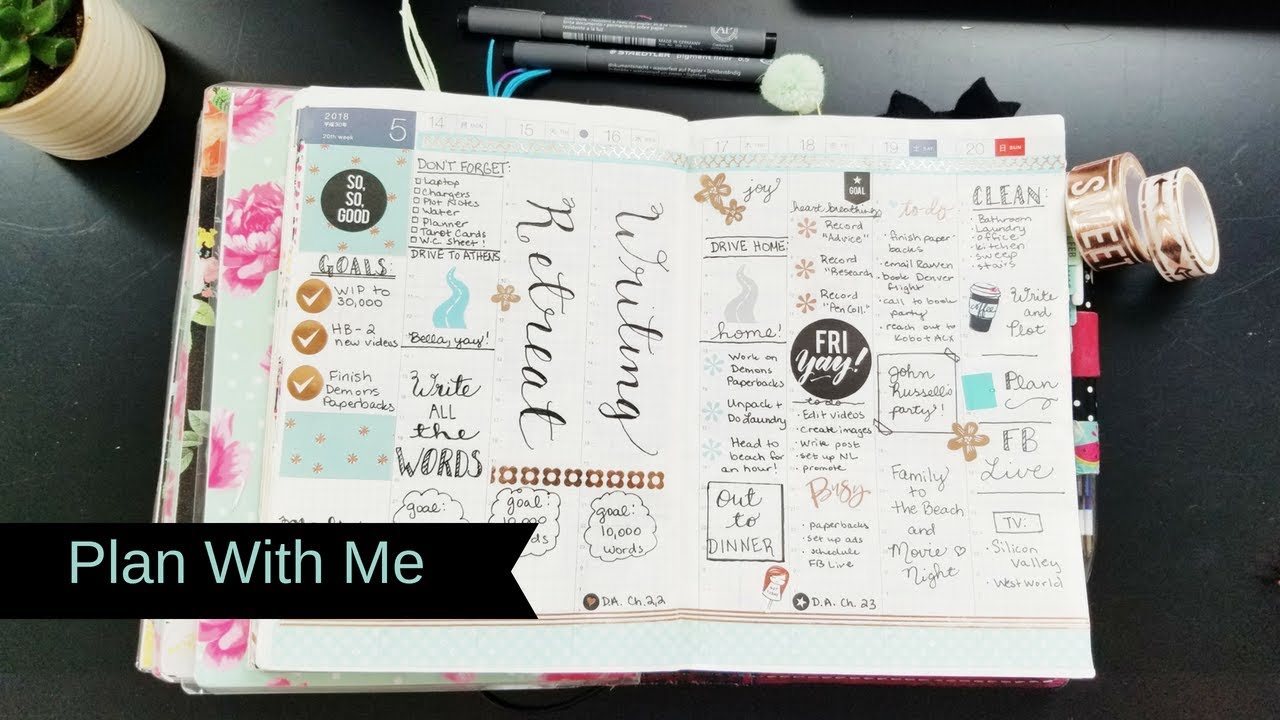 MADE IN GERMANY
STAEDTLER pigment liner
2018
平成30年
20th week
5
14
SO,
SO,
GOOD
GOALS:
WIP to
30,000
HB-2
new videos
Finish
Demons
Paperbacks
DON'T FORGET:
Laptop
Chargers
Plot Notes
Water
Planner
Tarot Cards
W.C. Sheet!
DRIVE TO ATHENS
"Bella, yay!
Write
ALL
the
WORDS
goal:
15
Retreat
goal:
10,000
16
Writing
goal:
10,000
words
D.A. Ch. 22
17
joy
DRIVE HOME:
home!
Work on
Demons
Paperbacks
Unpack +
Do Laundry
Head to
beach for
an hour!
Out
to
DINNER
18
GOAL
heart breathings
Record
"Advice"
Record
"Research
Record
"Pen Coll."
FRI
yay!
to do
Edit videos
create images
Write post
set up NL
promote
Busy
paperbacks
set up ads
schedule
FB Live
D.A. Ch. 23
19 土 SAT
to do
finish paper-
backs
email Rawen
book Denver
flight
call to book
party!
reach out to
Kobo + ACX
John
Russell's
party!
Family
to
the Beach
and
Movie
Night
20 日 SUN
CLEAN:
Bathroom
Laundry
office
kitchen
sweep
stairs
coffee
Write
and
Plot
Plan
FB
Live
TV:
Silicon
Valley
Westworld
SWEET
Plan With Me